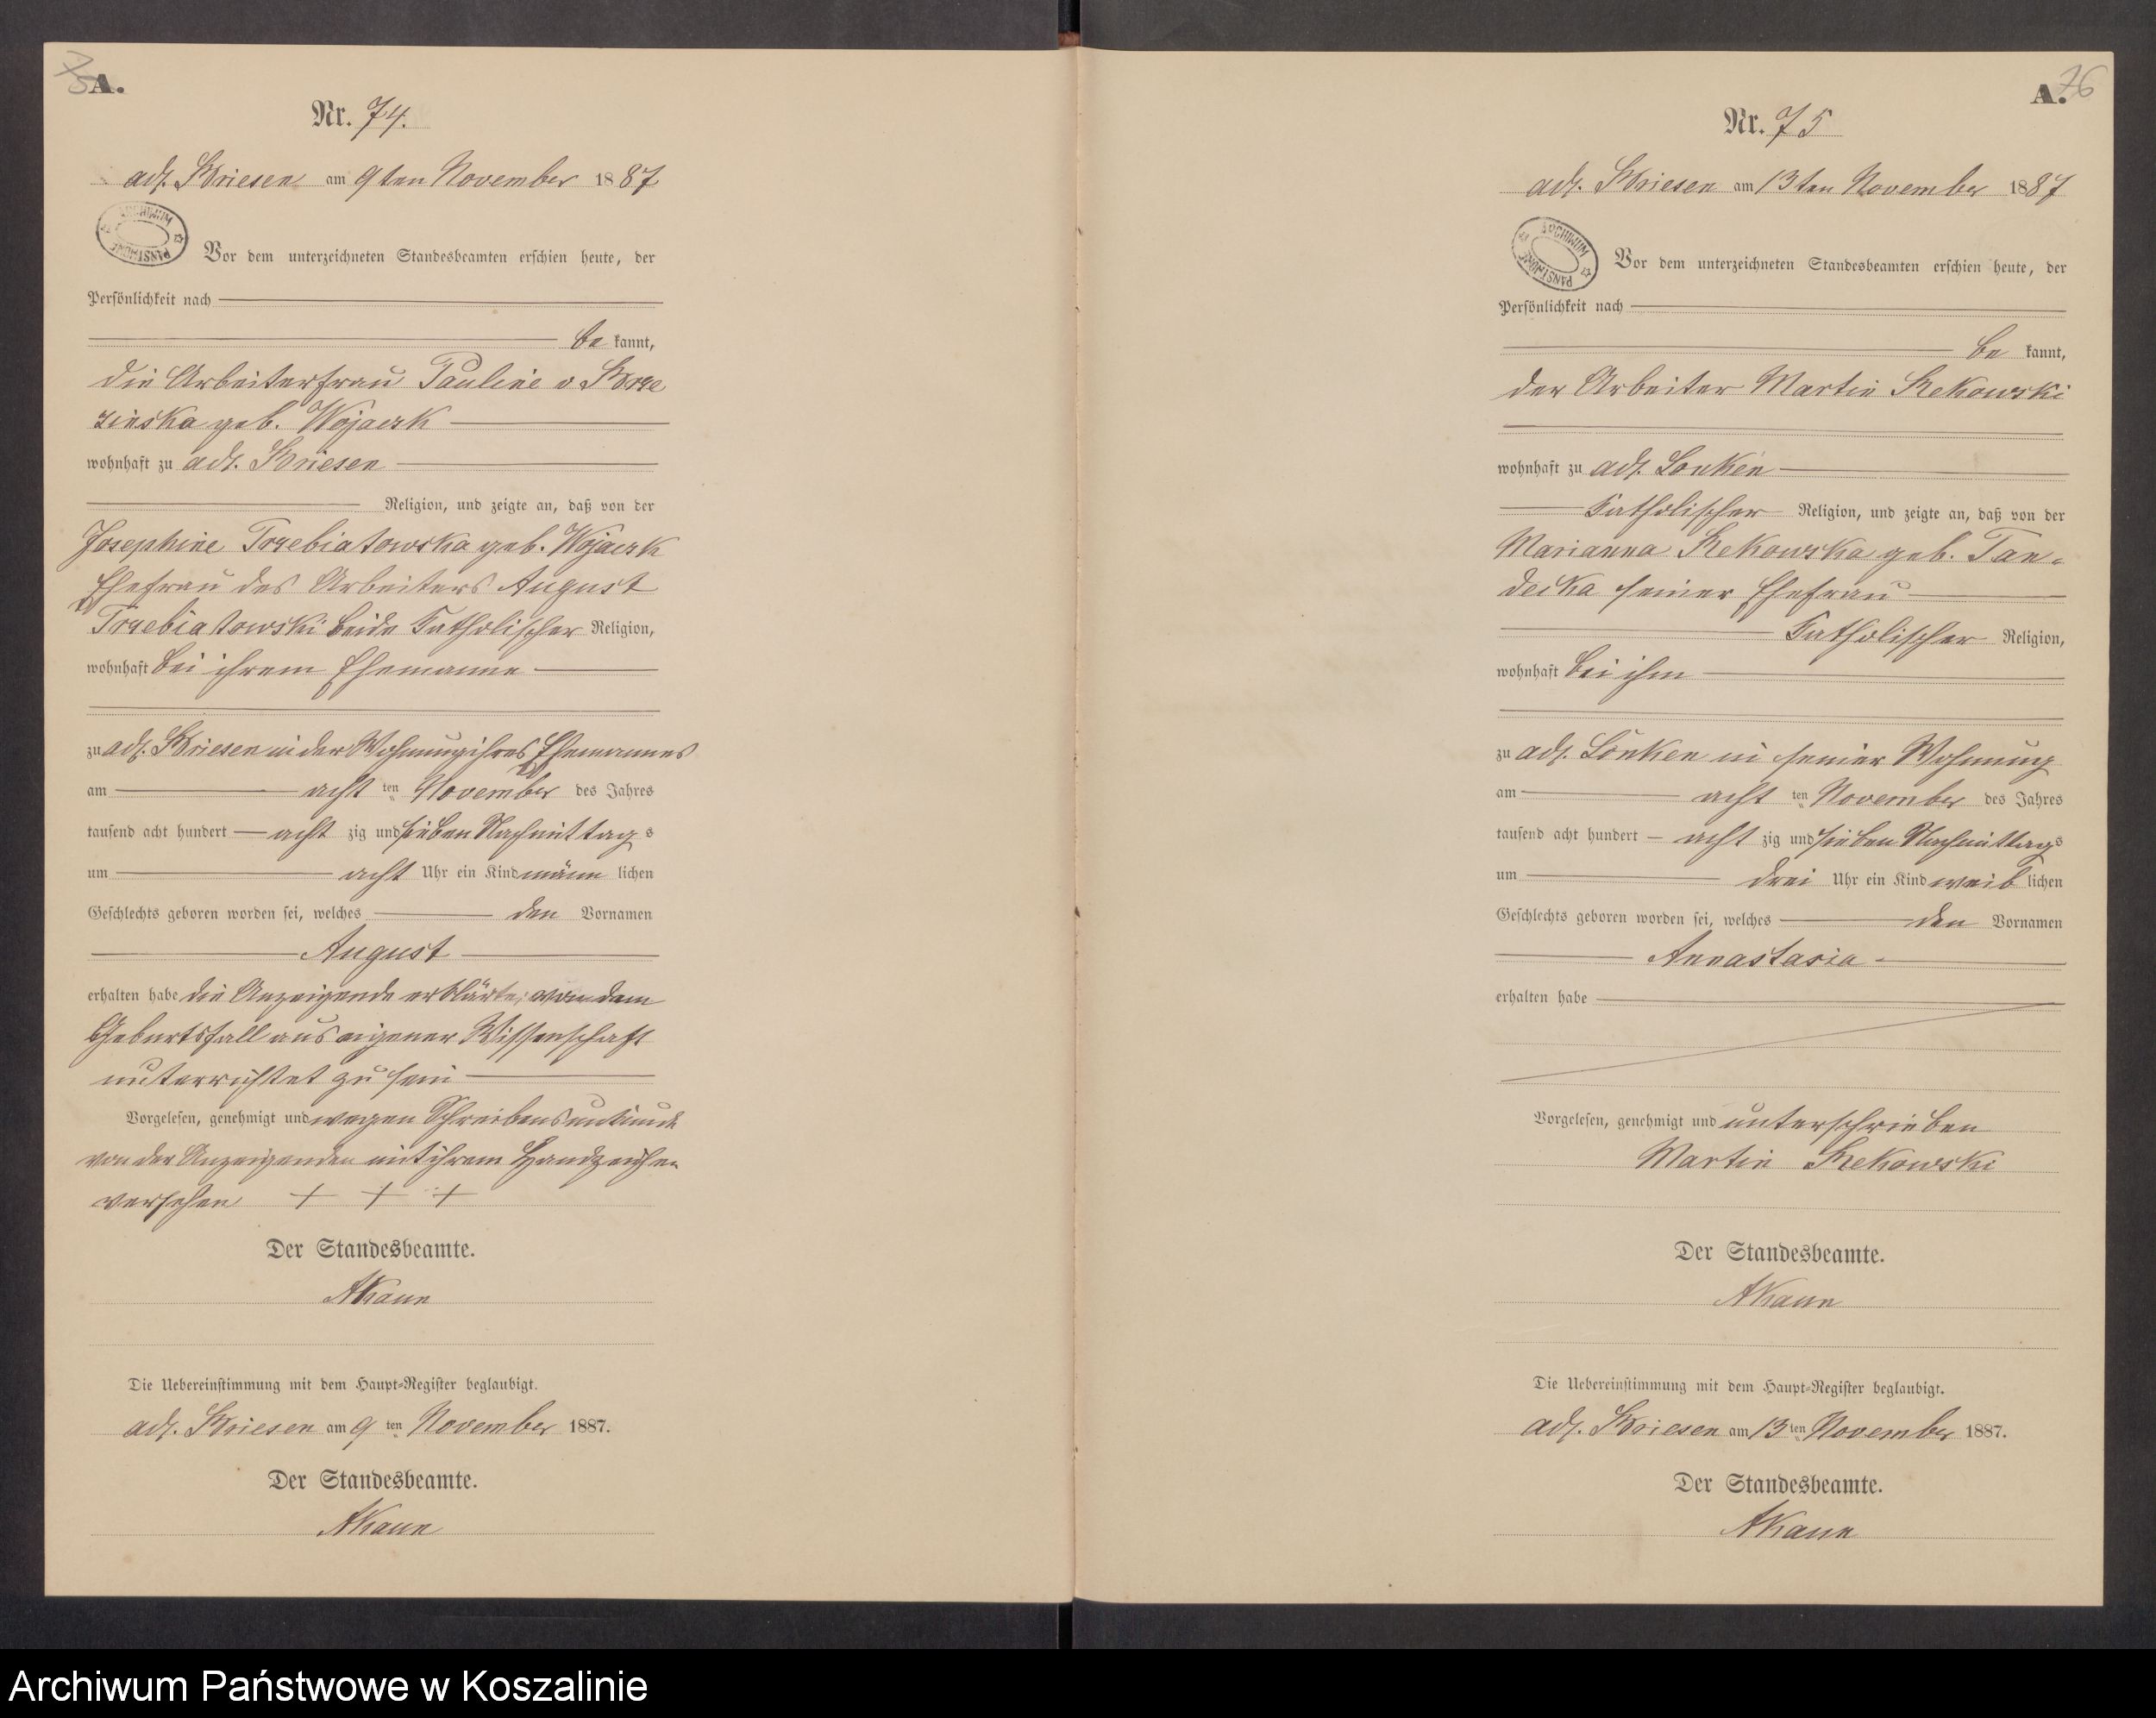 75
A.
Nr. 74.
adl. Briesen am 9ten November 1887
ARCHIWUM PAŃSTWOWE
Vor dem unterzeichneten Standesbeamten erschien heute, der
Persönlichkeit nach
be kannt,
die Arbeiterfrau Pauline v Brze
zinska geb. Wojaczk
wohnhaft zu adl. Briesen
Religion, und zeigte an, daß von der
Josephine Trzebiatowska geb. Wojaczk
Ehefrau des Arbeiters August
v Trzebiatowski beide Katholischer Religion,
wohnhaft bei ihrem Ehemanne
zu adl. Briesen in der Wohnung ihres Ehemannes
am acht ten November des Jahres
tausend acht hundert acht zig und sieben Nachmittags
um acht Uhr ein Kind männ lichen
Geschlechts geboren worden sei, welches den Vornamen
August
erhalten habe die Anzeigende erklärte, von dem
Geburtsfall aus eigener Wissenschaft
unterrichtet zu sein
Vorgelesen, genehmigt und wegen Schreibensunkunde
von der Anzeigenden mit ihrem Handzeichen
versehen + + +
Der Standesbeamte.
AKaun
Die Uebereinstimmung mit dem Haupt-Register beglaubigt.
adl. Briesen am 9 ten November 1887.
Der Standesbeamte.
AKaun
76
A.
Nr. 75
adl. Briesen am 13ten November 1887
ARCHIWUM PAŃSTWOWE
Vor dem unterzeichneten Standesbeamten erschien heute, der
Persönlichkeit nach
be kannt,
der Arbeiter Martin Rekowski
wohnhaft zu adl. Lonken
Katholischer Religion, und zeigte an, daß von der
Marianna Rekowska geb. Tan-
decka seiner Ehefrau
Katholischer Religion,
wohnhaft bei ihm
zu adl. Lonken in seiner Wohnung
am acht ten November des Jahres
tausend acht hundert acht zig und sieben Nachmittags
um drei Uhr ein Kind weib lichen
Geschlechts geboren worden sei, welches den Vornamen
Annastasia
erhalten habe
Vorgelesen, genehmigt und unterschrieben
Martin Rekowski
Der Standesbeamte.
AKaun
Die Uebereinstimmung mit dem Haupt-Register beglaubigt.
adl. Briesen am 13ten November 1887.
Der Standesbeamte.
AKaun
Archiwum Państwowe w Koszalinie